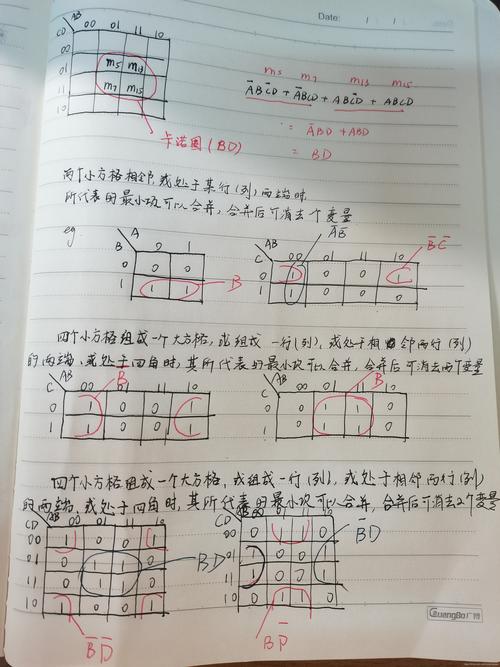 Date: / /
AB
CD 00 01 11 10
00
01 m5 m13
11 m7 m15
10
卡诺图(BD)
m5 m7 m13 m15
A̅BC̅D + A̅BCD + ABC̅D + ABCD
= A̅BD + ABD
= BD
两个小方格相邻,或处于某行(列)两端时,
所代表的最小项可以合并,合并后可消去个变量
eg
A
B 0 1
0 0 0
1 1 1
B
A̅B̅
B̅C̅
AB
C 00 01 11 10
0 1 0 0 1
1 1 0 0 0
四个小方格组成一个大方格,或组成一行(列),或处于相邻两行(列)
的两端,或处于四角时,其所代表的最小项可以合并,合并后可消去两个变量
AB
C 00 01 11 10
0 1 0 0 1
1 1 0 0 1
B
AB
C 00 01 11 10
0 0 1 1 0
1 0 1 1 0
B
四个小方格组成一个大方格,或组成一行(列),或处于相邻两行(列)
的两端,或处于四角时,其所代表的最小项可以合并,合并后可消去2个变量
AB
CD 00 01 11 10
00 1 0 0 1
01 0 1 1 0
11 0 1 1 0
10 1 0 0 1
BD
B̅D̅
AB
CD 00 01 11 10
00 0 1 1 0
01 1 0 0 1
11 1 0 0 1
10 0 1 1 0
B̅D
BD̅
GuangBo广博